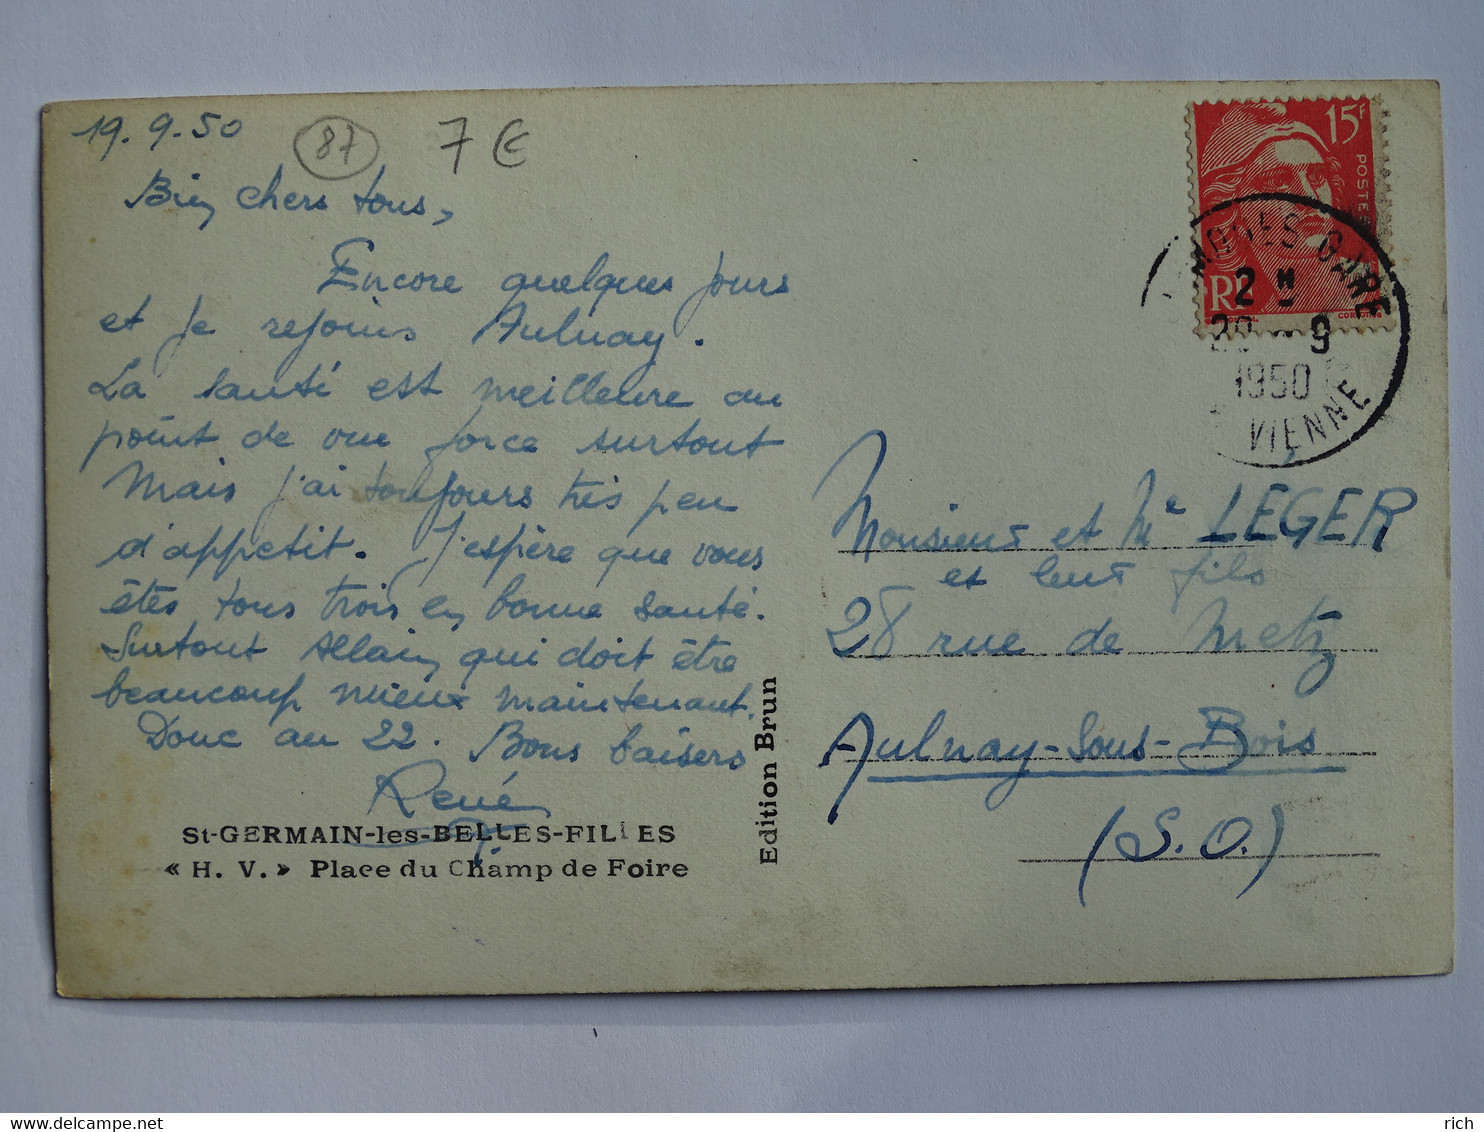 19.9.50
87
7 €
Bien chers tous,
Encore quelques jours
et je rejoins Aulnay.
La santé est meilleure au
point de vue force surtout
Mais j'ai toujours très peu
d'appétit. J'espère que vous
êtes tous trois en bonne santé.
Surtout Allain qui doit être
beaucoup mieux maintenant.
Donc au 22. Bons baisers
René
St-GERMAIN-les-BELLES-FILLES
« H. V. » Place du Champ de Foire
Edition Brun
15F
POSTES
RF
LIMOGES GARE
2 H
20 - 9
1950
VIENNE
Monsieur et Me LÉGER
et leur fils
28 rue de Metz
Aulnay-Sous-Bois
(S.O.)
rich
delcampe.net